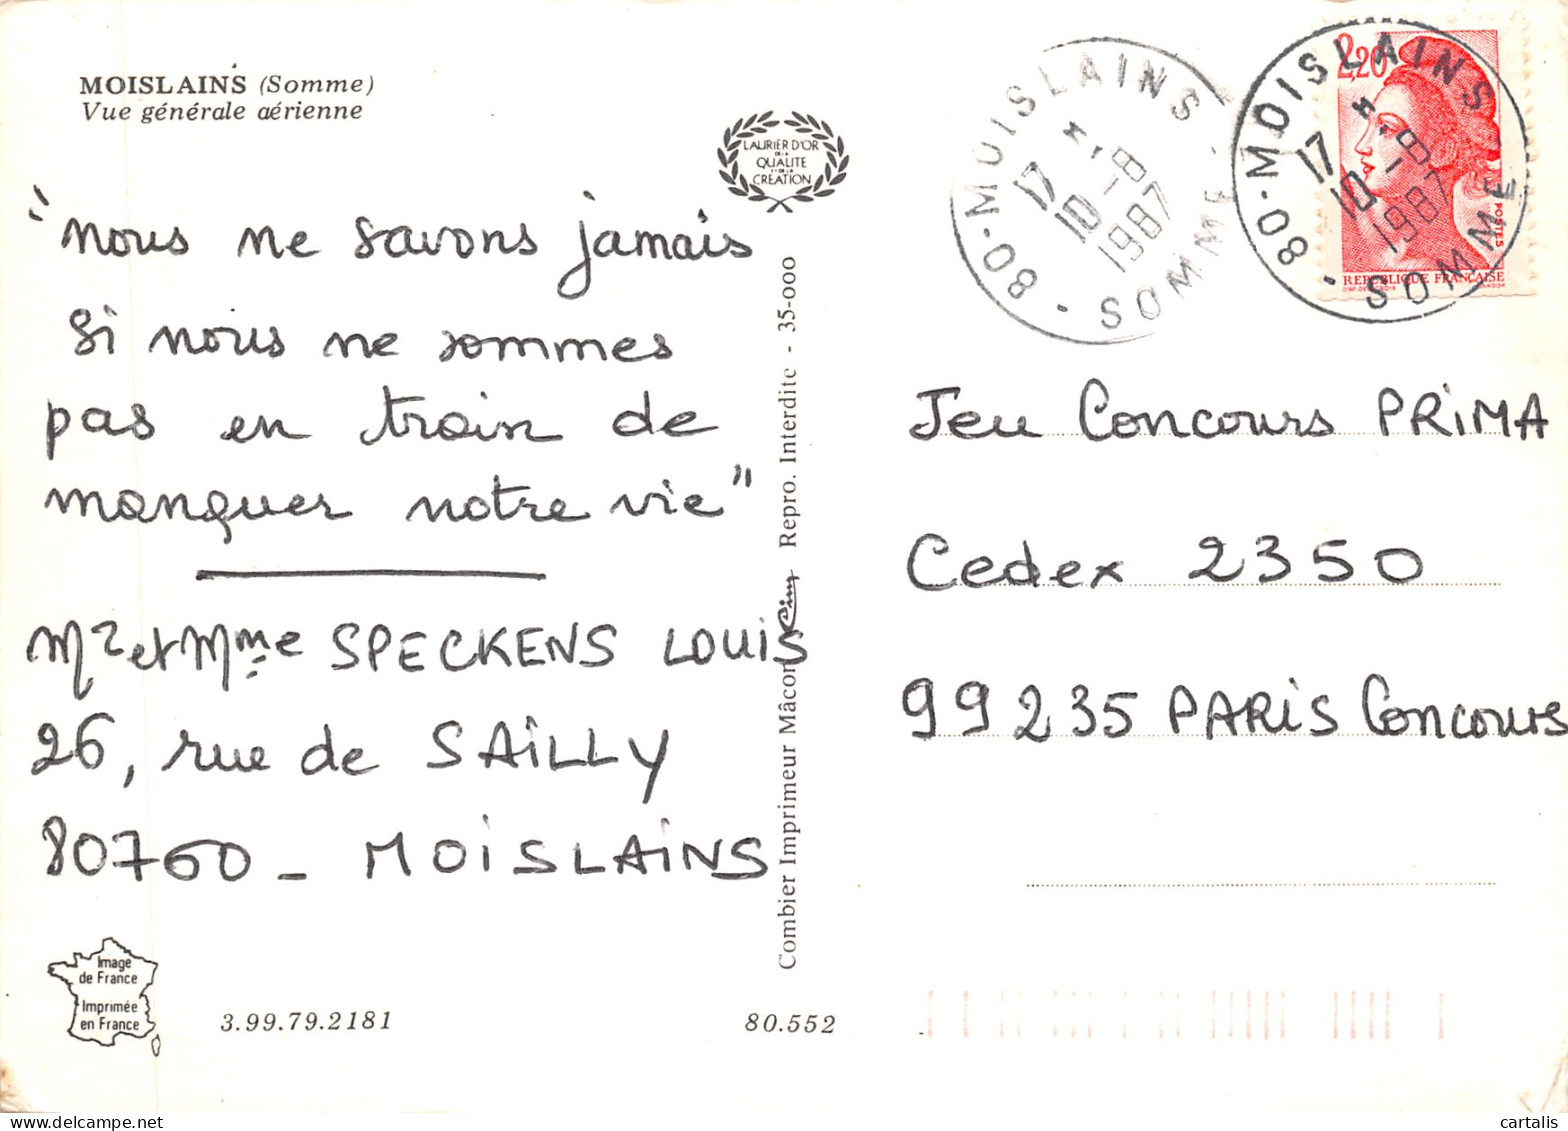 MOISLAINS (Somme)
Vue générale aérienne
LAURIER D'OR
DE LA
QUALITE
ET DE LA
CREATION
"nous ne savons jamais
si nous ne sommes
pas en train de
manquer notre vie"
Mr et Mme SPECKENS LOUIS
26, rue de SAILLY
80760 - MOISLAINS
Image
de France
Imprimée
en France
3.99.79.2181
80.552
Combier Imprimeur Mâcon Cim Repro. Interdite - 35-000
80-MOISLAINS - SOMME -
17 H
10-8
1987
80-MOISLAINS
SOMME -
17 H
10-8
1987
2,20
POSTES
REPUBLIQUE FRANÇAISE
Jeu Concours PRIMA
Cedex 2350
99235 PARIS Concours
cartalis